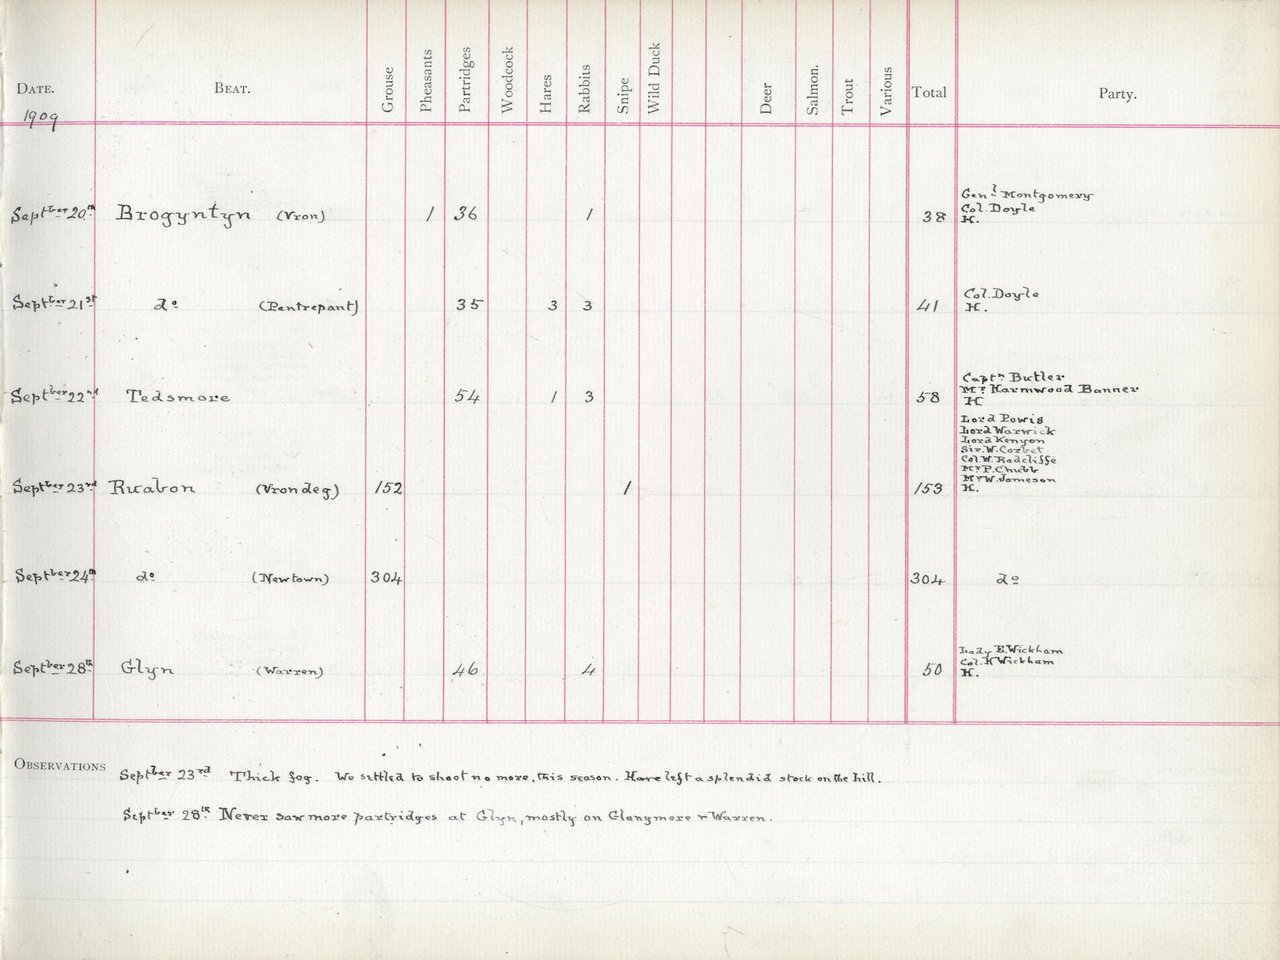 DATE. BEAT. Grouse Pheasants Partridges Woodcock Hares Rabbits Snipe Wild Duck Deer Salmon. Trout Various Total Party.
1909
Septber 20th Brogyntyn (Vron) 1 36 1 38 Genl Montgomery
Col. Doyle
H.
Septber 21st do (Pentrepant) 35 3 3 41 Col. Doyle
H.
Septber 22nd Tedsmore 54 1 3 58 Captn Butler
Mr Harmwood Banner
H
Septber 23rd Ruabon (Vrondeg) 152 1 153 Lord Powis
Lord Warwick
Lord Kenyon
Sir. W. Corbet
Col. W. Radcliffe
Mr P. Chubb
Mr W. Jameson
H.
Septber 24th do (Newtown) 304 304 do
Septber 28th Glyn (Warren) 46 4 50 Lady E. Wickham
Col. K Wickham
H.
OBSERVATIONS
Septber 23rd Thick fog. We settled to shoot no more, this season. Have left a splendid stock on the hill.
Septber 28th Never saw more partridges at Glyn, mostly on Glanymore & Warren.